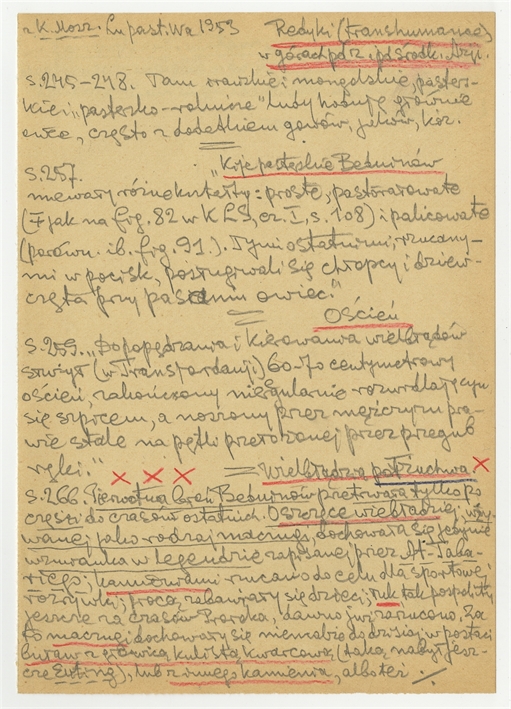 z K. Mosz. Lu past. Wa 1953 Redyki (transhumance)
w górach pd. i pd środk. Azji.
s. 245–248. Tam irańskie i mongolskie, paster-
skie i „pastersko-rolnicze" ludy hodują głównie
owce, często z dodatkiem gowów, jaków, kóz.
s. 257. „Kije pasterskie Beduinów
miewały różne kształty: proste, pastorałowate
(jak na fig. 82 w KLS, cz. I, s. 108) i palicowate
(porówn. ib. fig. 91.). Tymi ostatnimi, rzucany-
mi w pocisk, posługiwali się chłopcy i dziew-
częta przy pasaniu owiec."
Oścień
s. 259. „Do popędzania i kierowania wielbłądów
służył (w Transjordanji) 60-70 centymetrowy
oścień, zakończony nieregularnie rozwidlającym
się szpicem, a noszony przez mężczyzn pra-
wie stale na pętli przełożonej przez przegub
ręki. Wielbłądzia patruchwa
s. 266. Pierwotna broń Beduinów przetrwała tylko po
części do czasów ostatnich. O szczęce wielbłądziej, uży-
wanej jako rodzaj maczugi, dochowała się jedynie
wzmianka w legendzie zapisanej przez At-Taba-
riego; kamieniami rzucano do celu dla sportowej
rozrywki; procą zabawiały się dzieci; łuk tak pospolity
jeszcze za czasów Proroka, dawno już zarzucono. Za
to maczugi dochowały się niemal że do dzisiaj w postaci
buław z głowicą kulistą, kwarcową (taką nabył jesz-
cze Euting), lub z innego kamienia, albo też